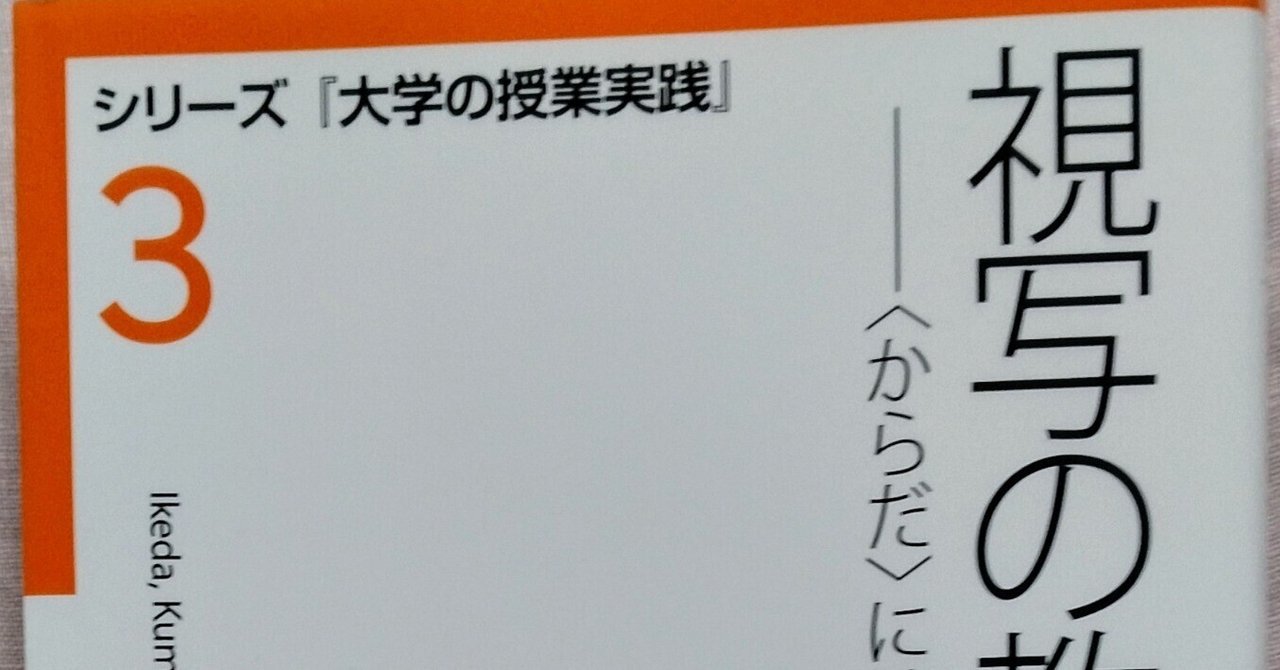 シリーズ『大学の授業実践』
3
視写の教
──〈からだ〉に
Ikeda, Kum